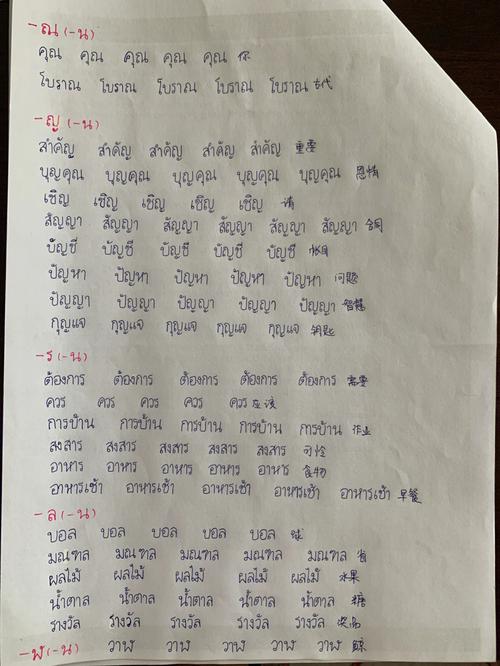 -ณ (-น)
คุณ คุณ คุณ คุณ คุณ 你
โบราณ โบราณ โบราณ โบราณ โบราณ 古代
-ญ (-น)
สำคัญ สำคัญ สำคัญ สำคัญ สำคัญ 重要
บุญคุณ บุญคุณ บุญคุณ บุญคุณ บุญคุณ 恩情
เชิญ เชิญ เชิญ เชิญ เชิญ 请
สัญญา สัญญา สัญญา สัญญา สัญญา สัญญา 合同
บัญชี บัญชี บัญชี บัญชี บัญชี 帐目
ปัญหา ปัญหา ปัญหา ปัญหา ปัญหา 问题
ปัญญา ปัญญา ปัญญา ปัญญา ปัญญา 智慧
กุญแจ กุญแจ กุญแจ กุญแจ กุญแจ 钥匙
-ร (-น)
ต้องการ ต้องการ ต้องการ ต้องการ ต้องการ 需要
ควร ควร ควร ควร ควร 应该
การบ้าน การบ้าน การบ้าน การบ้าน การบ้าน 作业
สงสาร สงสาร สงสาร สงสาร สงสาร 可怜
อาหาร อาหาร อาหาร อาหาร อาหาร 食物
อาหารเช้า อาหารเช้า อาหารเช้า อาหารเช้า อาหารเช้า 早餐
-ล (-น)
บอล บอล บอล บอล บอล 球
มณฑล มณฑล มณฑล มณฑล มณฑล 省
ผลไม้ ผลไม้ ผลไม้ ผลไม้ ผลไม้ 水果
น้ำตาล น้ำตาล น้ำตาล น้ำตาล น้ำตาล 糖
รางวัล รางวัล รางวัล รางวัล รางวัล 奖品
-ฬ (-น) วาฬ วาฬ วาฬ วาฬ วาฬ 鲸